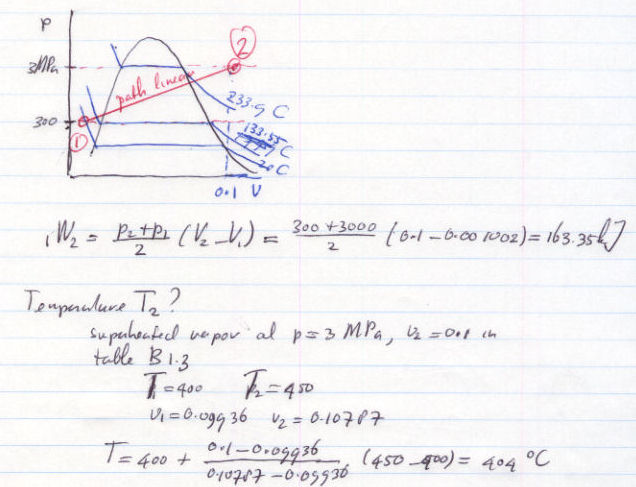 P
2
3MPa
path linear
233.9 C
300
133.55
C
1
20 C
0.1 V
₁W₂ = (P₂+P₁)/2 (V₂ - V₁) = (300+3000)/2 (0.1 - 0.001002) = 163.35 kJ
Temperature T₂?
superheated vapor at p=3 MPa, v₂=0.1 in
table B 1.3
T₁=400 T₂=450
v₁=0.09936 v₂=0.10787
T=400 + (0.1-0.09936)/(0.10787-0.09936) (450-400) = 404 °C